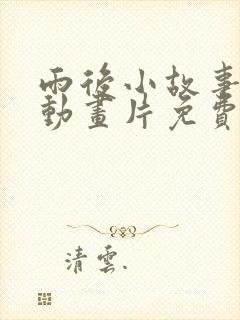 雨後小故事
動畫片免費
清雲.